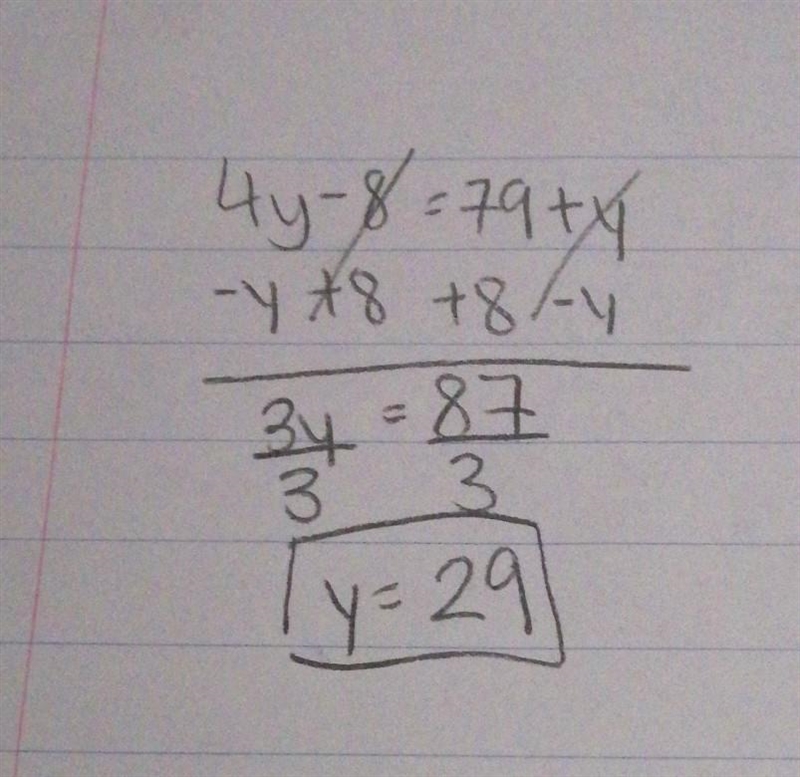 4y-8=79+y
-y +8 +8 -y
3y = 87
3 3
y=29